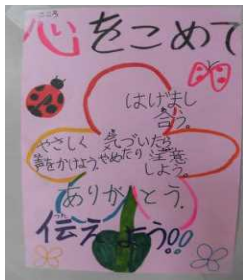 心をこめて
はげまし
合う。
やさしく
声をかけよう。
気づいたら
やめたり
注意
しよう。
ありがとう。
伝えよう!!